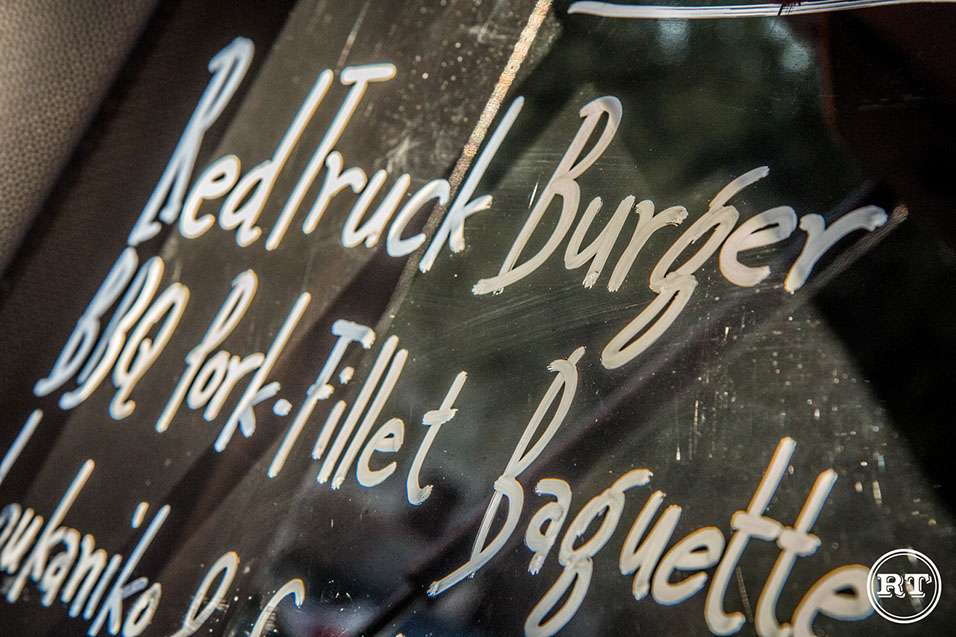 RedTruck Burger
BBQ Pork-Fillet Baguette
oukaniko &
RT